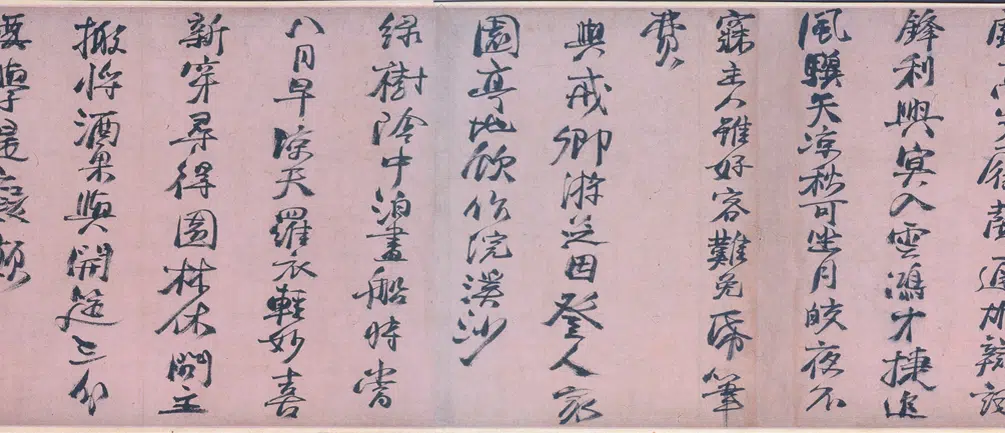 鋒利興冥入雲鴻才捷追
風驥天涼秋可坐月皎夜不
寐主人雖好客難免帋筆
費
與戒卿游芝因登人家
園亭地飲作浣溪沙
綠樹陰中泊畫船時當
八月早涼天羅衣輕妙喜
新穿尋得園林休問主
搬將酒果與開筵三分